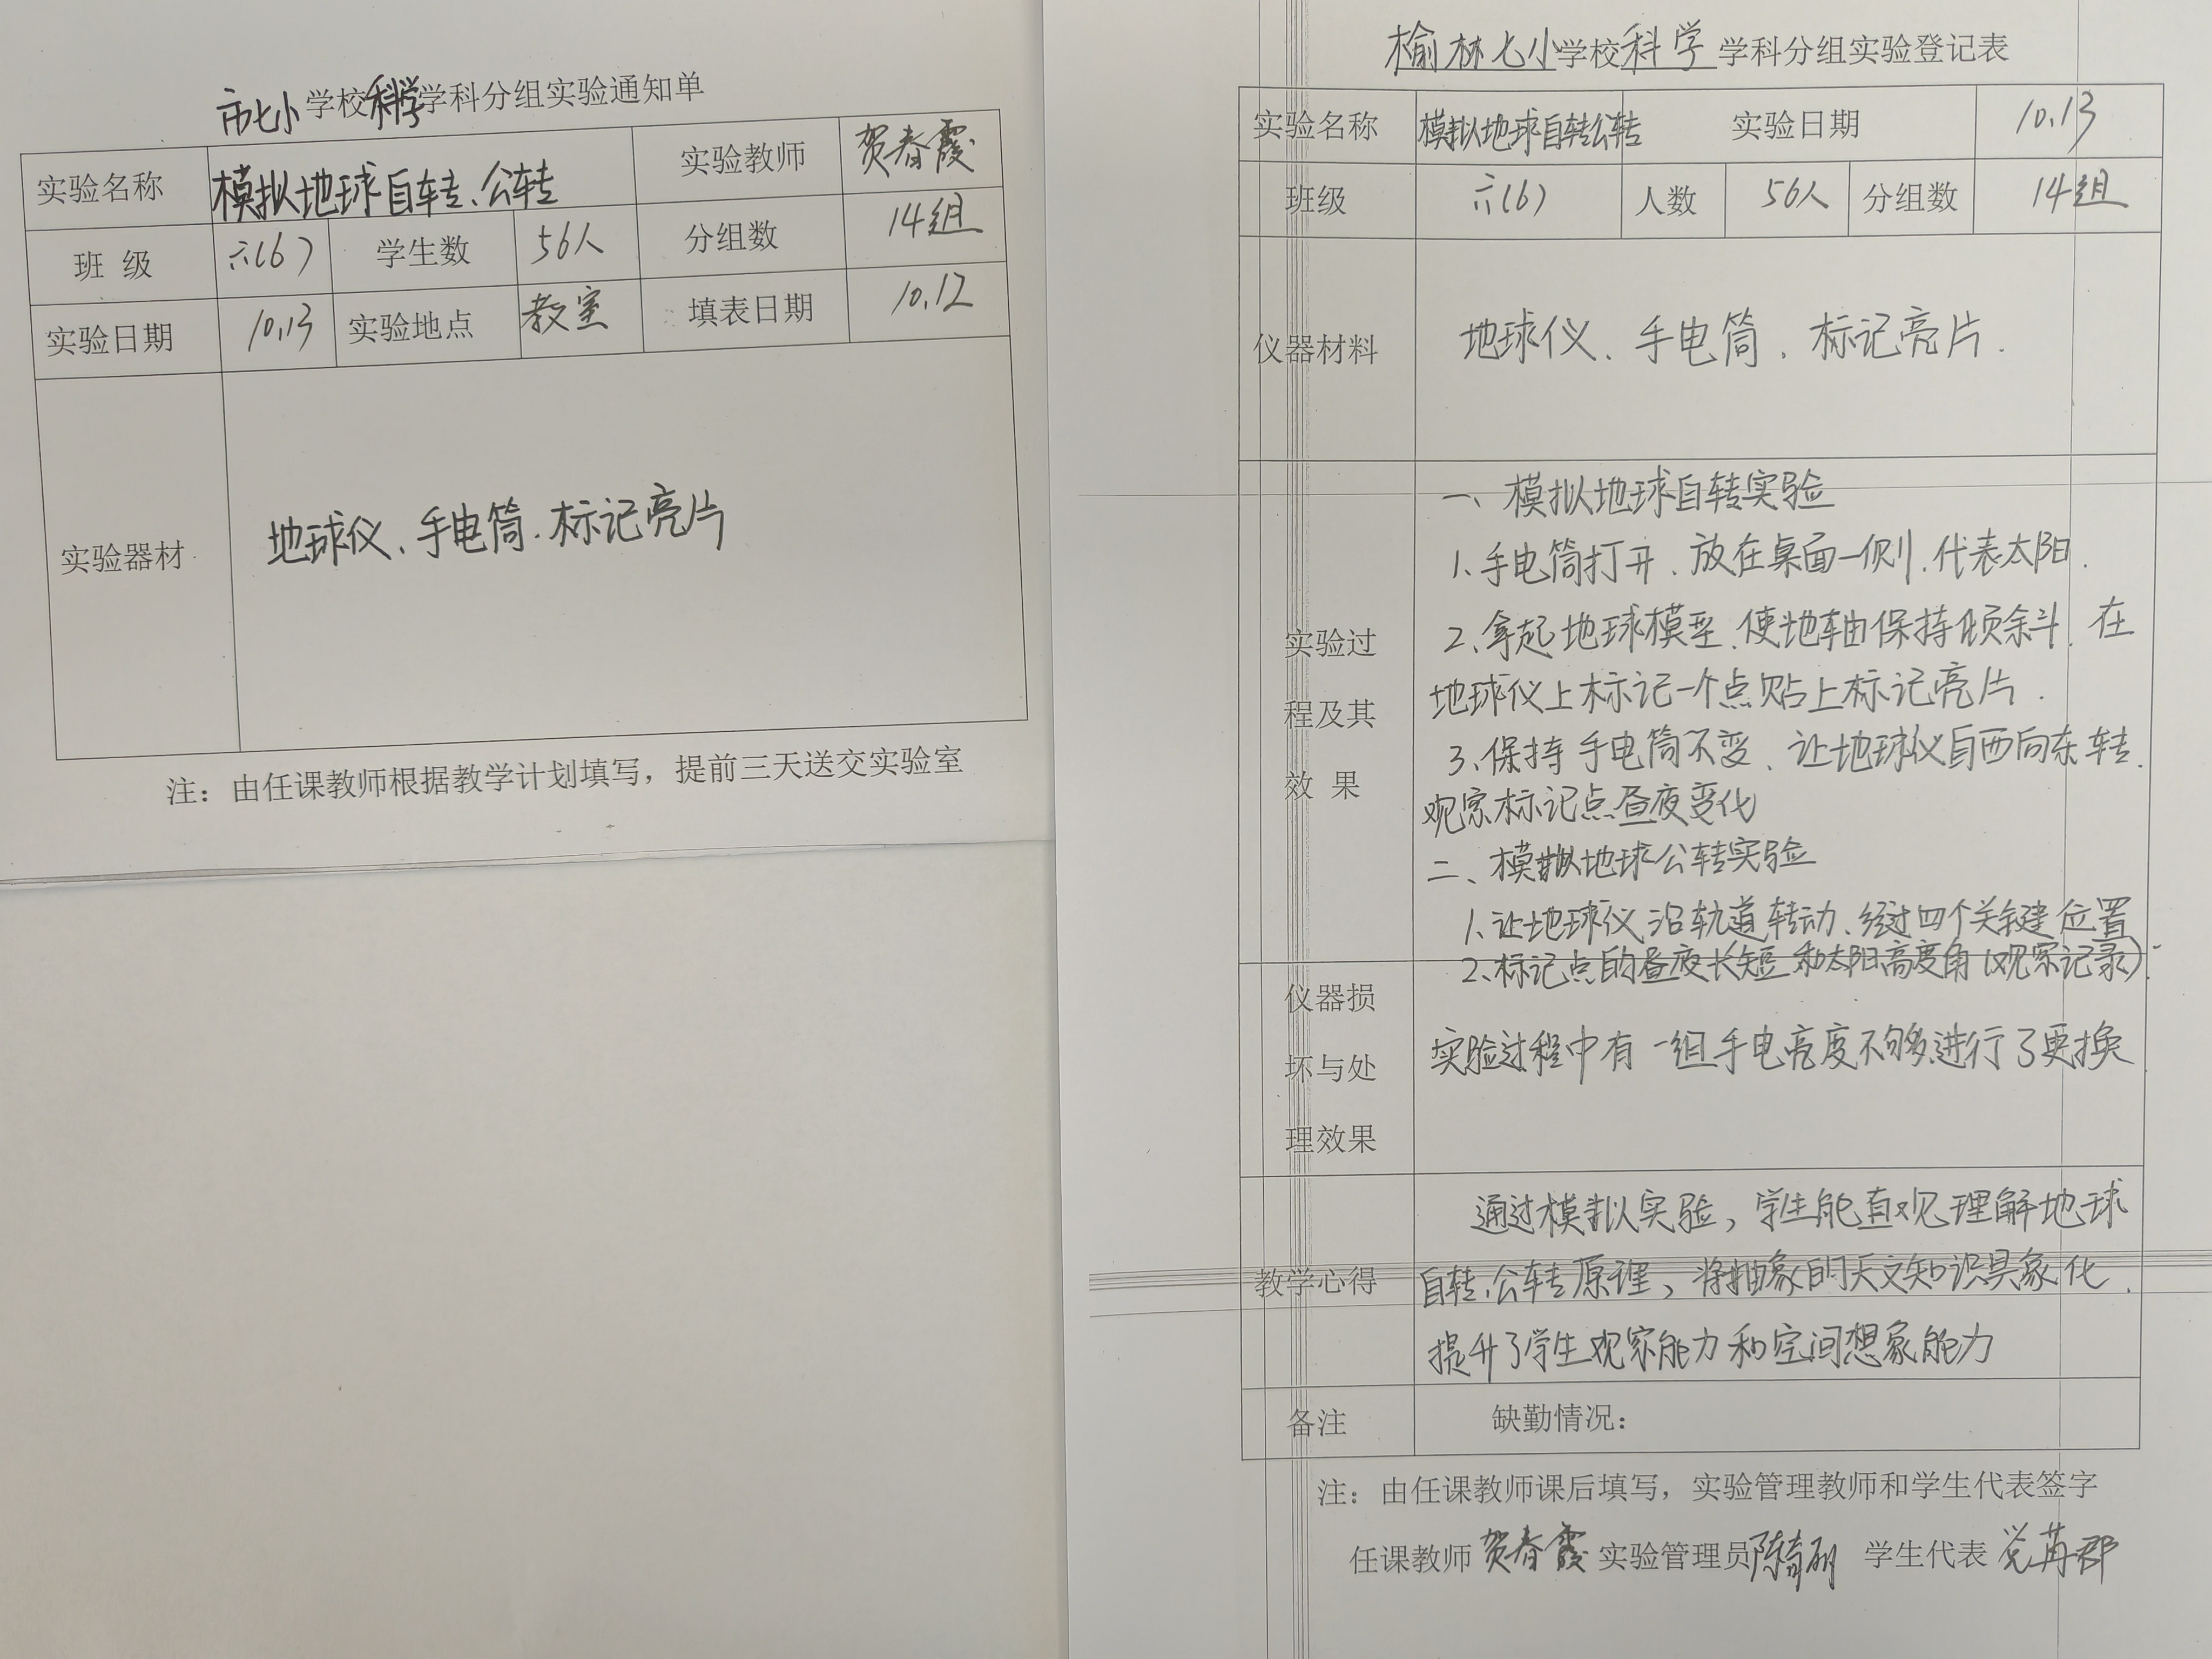 市七小学校科学学科分组实验通知单
实验名称 模拟地球自转、公转 实验教师 贺春霞
班 级 六(6) 学生数 56人 分组数 14组
实验日期 10.13 实验地点 教室 填表日期 10.12
实验器材 地球仪、手电筒.标记亮片
注：由任课教师根据教学计划填写，提前三天送交实验室
榆林七小学校科学学科分组实验登记表
实验名称 模拟地球自转公转 实验日期 10.13
班级 六(6) 人数 56人 分组数 14组
仪器材料 地球仪、手电筒、标记亮片.
一、模拟地球自转实验
1.手电筒打开、放在桌面一侧.代表太阳.
实验过 2.拿起地球模型.使地轴保持倾斜.在
程及其 地球仪上标记一个点贴上标记亮片.
3.保持手电筒不变、让地球仪自西向东转.
效 果 观察标记点昼夜变化
二、模拟地球公转实验
1.让地球仪沿轨道转动、经过四个关键位置
2.标记点的昼夜长短和太阳高度角(观察记录).
仪器损
坏与处 实验过程中有一组手电亮度不够进行了更换
理效果
通过模拟实验，学生能直观理解地球
教学心得 自转.公转原理、将抽象的天文知识具象化.
提升了学生观察能力和空间想象能力
备注 缺勤情况：
注：由任课教师课后填写，实验管理教师和学生代表签字
任课教师 贺春霞 实验管理员 学生代表